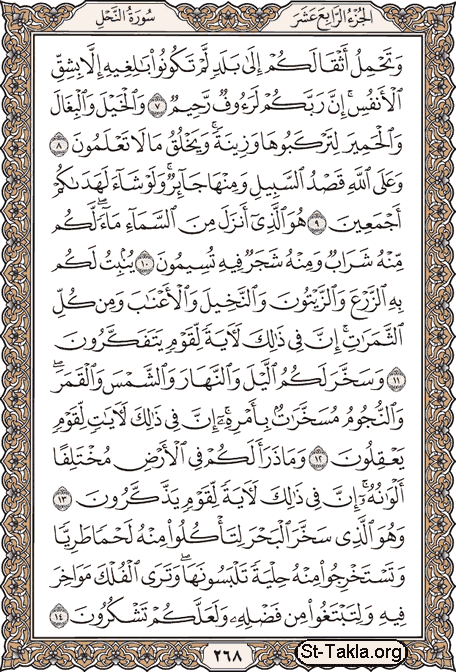 سُورَةُ النَّحْلِ الجُزْءُ الرَّابِعَ عَشَرَ
وَتَحْمِلُ أَثْقَالَكُمْ إِلَىٰ بَلَدٍ لَّمْ تَكُونُوا۟ بَـٰلِغِيهِ إِلَّا بِشِقِّ
ٱلْأَنفُسِ ۚ إِنَّ رَبَّكُمْ لَرَءُوفٌ رَّحِيمٌ ٧ وَٱلْخَيْلَ وَٱلْبِغَالَ
وَٱلْحَمِيرَ لِتَرْكَبُوهَا وَزِينَةً ۚ وَيَخْلُقُ مَا لَا تَعْلَمُونَ ٨
وَعَلَى ٱللَّهِ قَصْدُ ٱلسَّبِيلِ وَمِنْهَا جَآئِرٌ ۚ وَلَوْ شَآءَ لَهَدَىٰكُمْ
أَجْمَعِينَ ٩ هُوَ ٱلَّذِىٓ أَنزَلَ مِنَ ٱلسَّمَآءِ مَآءً ۖ لَّكُم
مِّنْهُ شَرَابٌ وَمِنْهُ شَجَرٌ فِيهِ تُسِيمُونَ ١٠ يُنۢبِتُ لَكُم
بِهِ ٱلزَّرْعَ وَٱلزَّيْتُونَ وَٱلنَّخِيلَ وَٱلْأَعْنَـٰبَ وَمِن كُلِّ
ٱلثَّمَرَٰتِ ۗ إِنَّ فِى ذَٰلِكَ لَـَٔايَةً لِّقَوْمٍ يَتَفَكَّرُونَ
١١ وَسَخَّرَ لَكُمُ ٱلَّيْلَ وَٱلنَّهَارَ وَٱلشَّمْسَ وَٱلْقَمَرَ ۖ
وَٱلنُّجُومُ مُسَخَّرَٰتٌۢ بِأَمْرِهِۦٓ ۗ إِنَّ فِى ذَٰلِكَ لَـَٔايَـٰتٍ لِّقَوْمٍ
يَعْقِلُونَ ١٢ وَمَا ذَرَأَ لَكُمْ فِى ٱلْأَرْضِ مُخْتَلِفًا
أَلْوَٰنُهُۥٓ ۗ إِنَّ فِى ذَٰلِكَ لَـَٔايَةً لِّقَوْمٍ يَذَّكَّرُونَ ١٣
وَهُوَ ٱلَّذِى سَخَّرَ ٱلْبَحْرَ لِتَأْكُلُوا۟ مِنْهُ لَحْمًا طَرِيًّا
وَتَسْتَخْرِجُوا۟ مِنْهُ حِلْيَةً تَلْبَسُونَهَا ۖ وَتَرَى ٱلْفُلْكَ مَوَاخِرَ
فِيهِ وَلِتَبْتَغُوا۟ مِن فَضْلِهِۦ وَلَعَلَّكُمْ تَشْكُرُونَ ١٤
٢٦٨
St-Takla.org